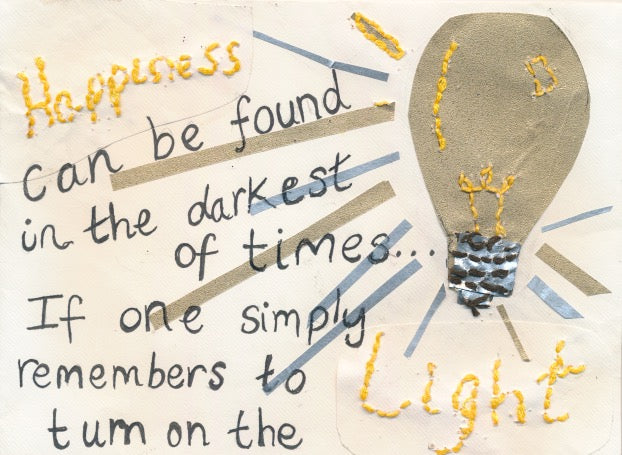 Happiness
can be found
in the darkest
of times...
If one simply
remembers to
turn on the
Light